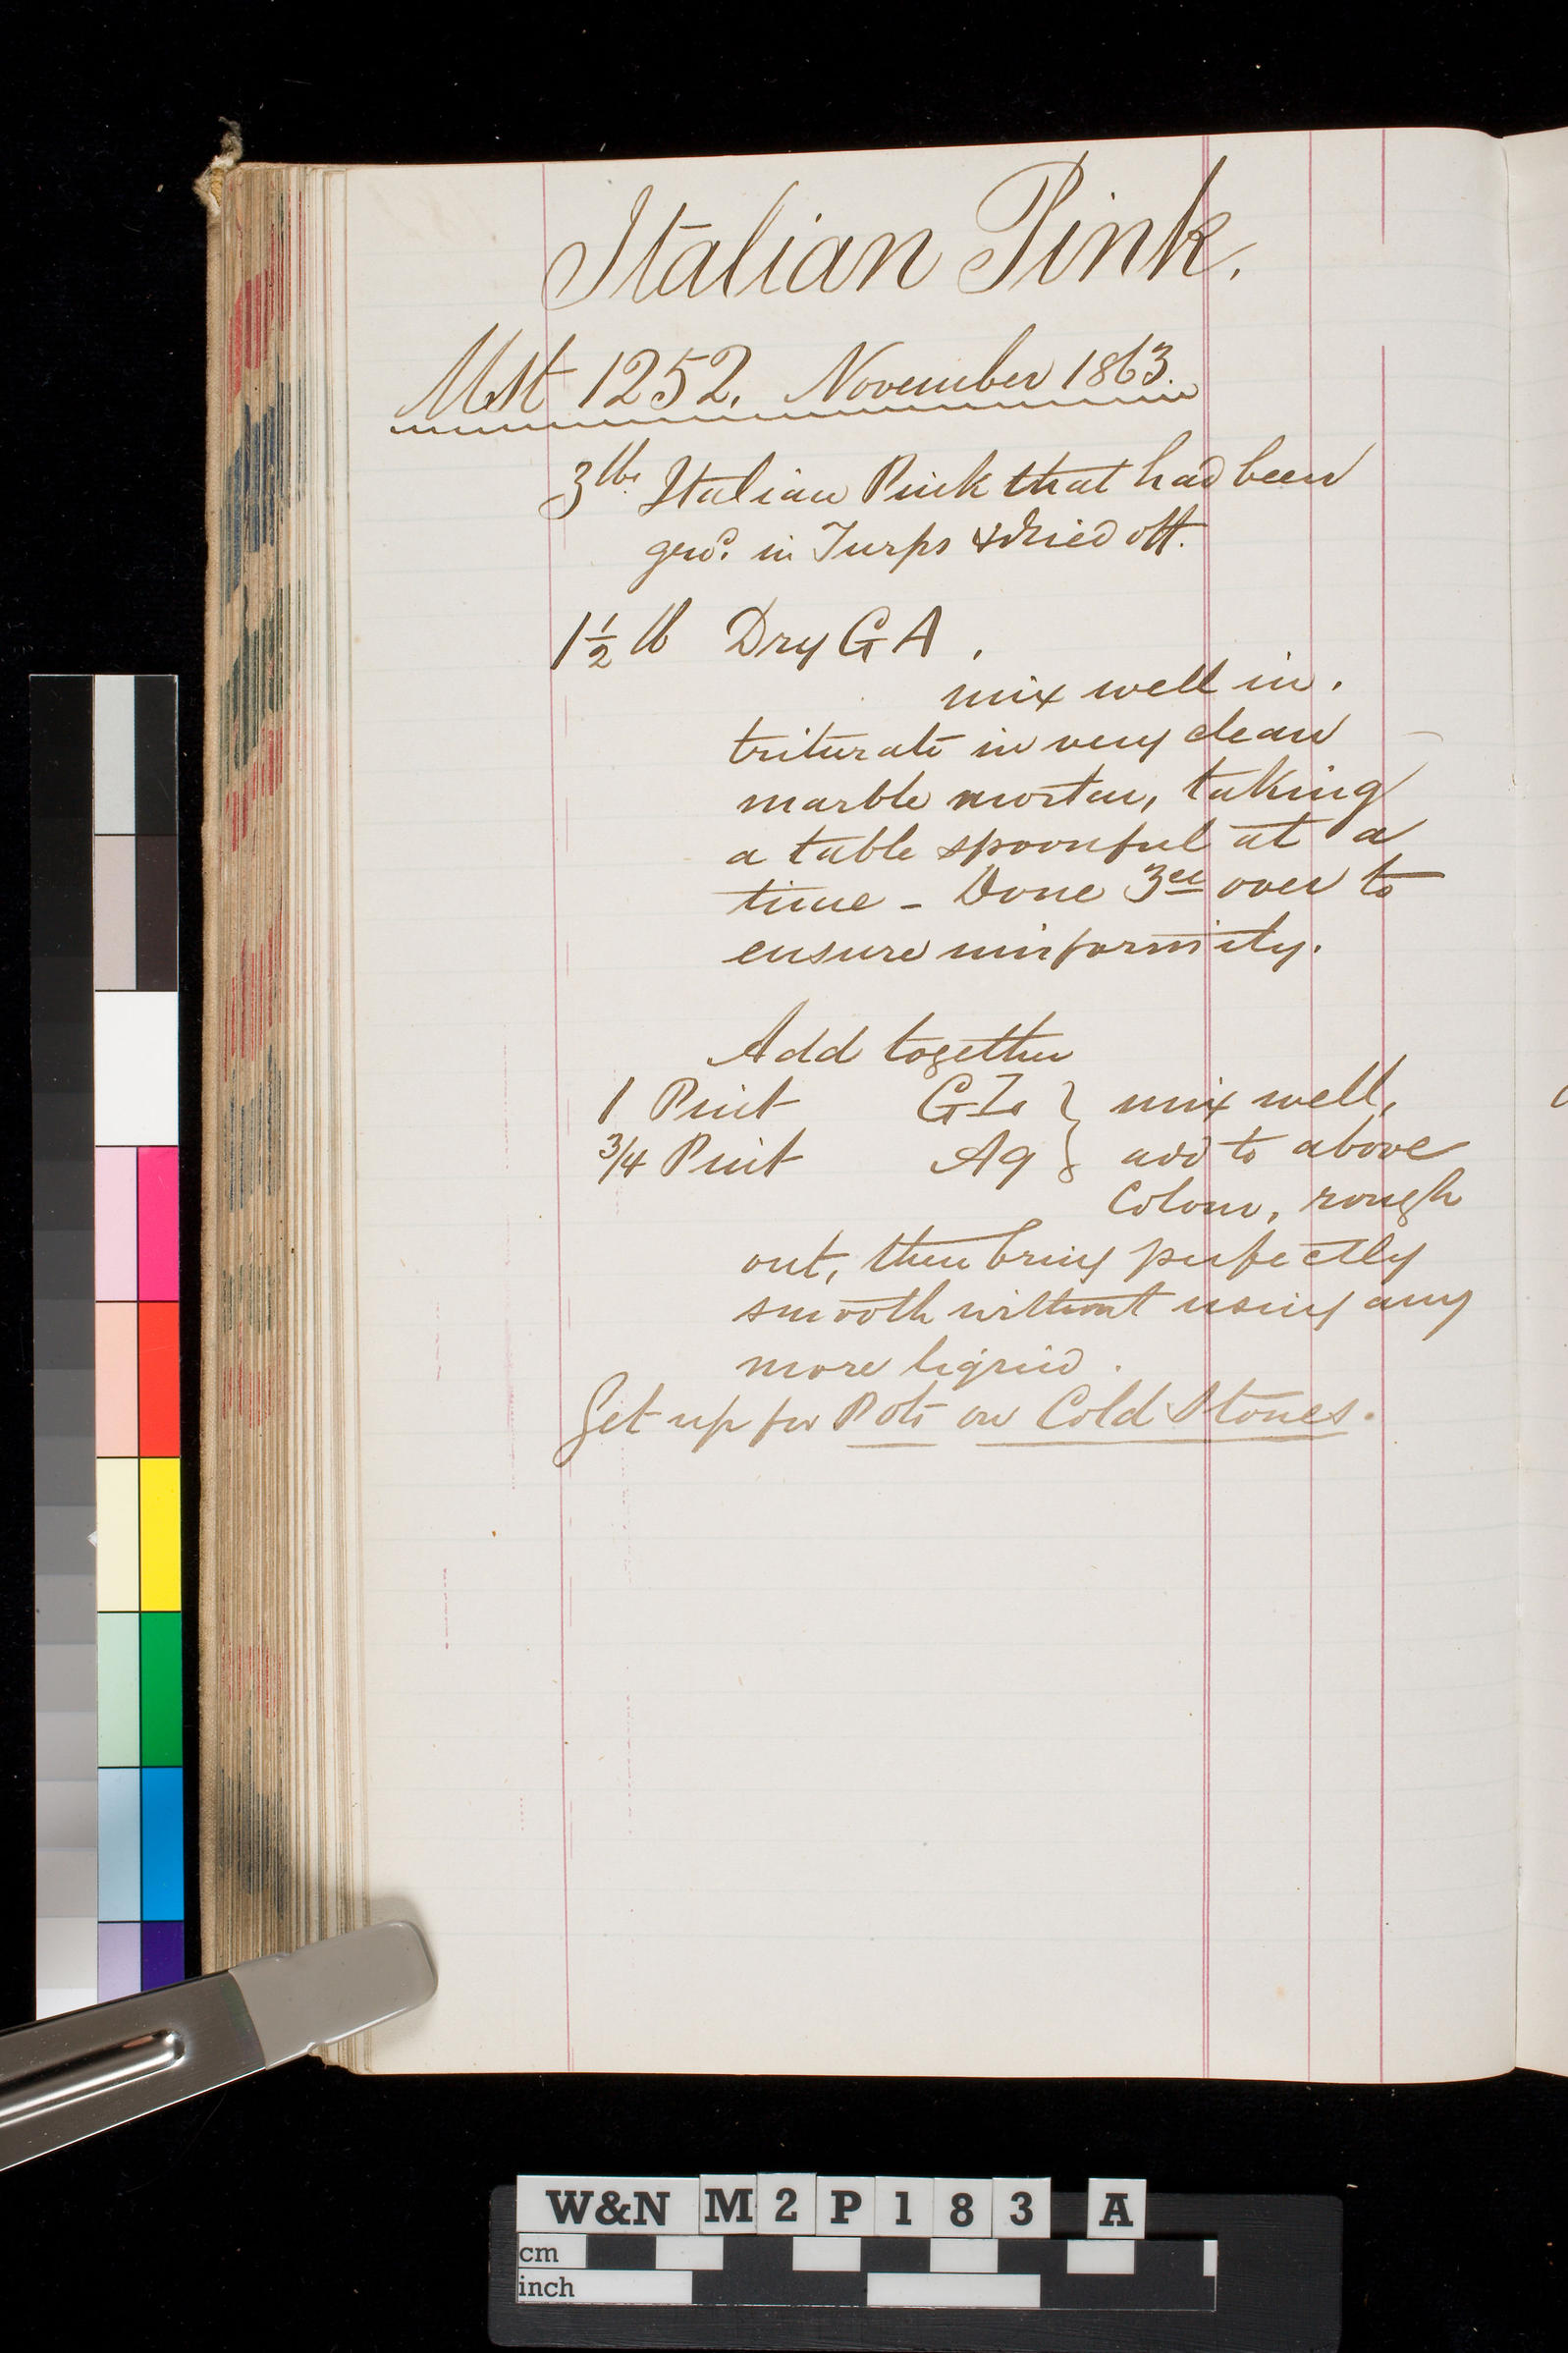 Italian Pink.
Mst 1252. November 1863.
3 lbs Italian Pink that had been
grd. in Turps & dried off.
1 1/2 lb Dry G A.
mix well in.
triturate in very clean
marble mortar, taking
a table spoonful at a
time - Done 3ce over to
ensure uniformity.
Add together
1 Pint G I. } mix well,
3/4 Pint Aq } add to above
Colour, rough
out, then bring perfectly
smooth without using any
more liquid.
Get up for Pots on Cold Stones.
W&N M2P183 A
cm
inch